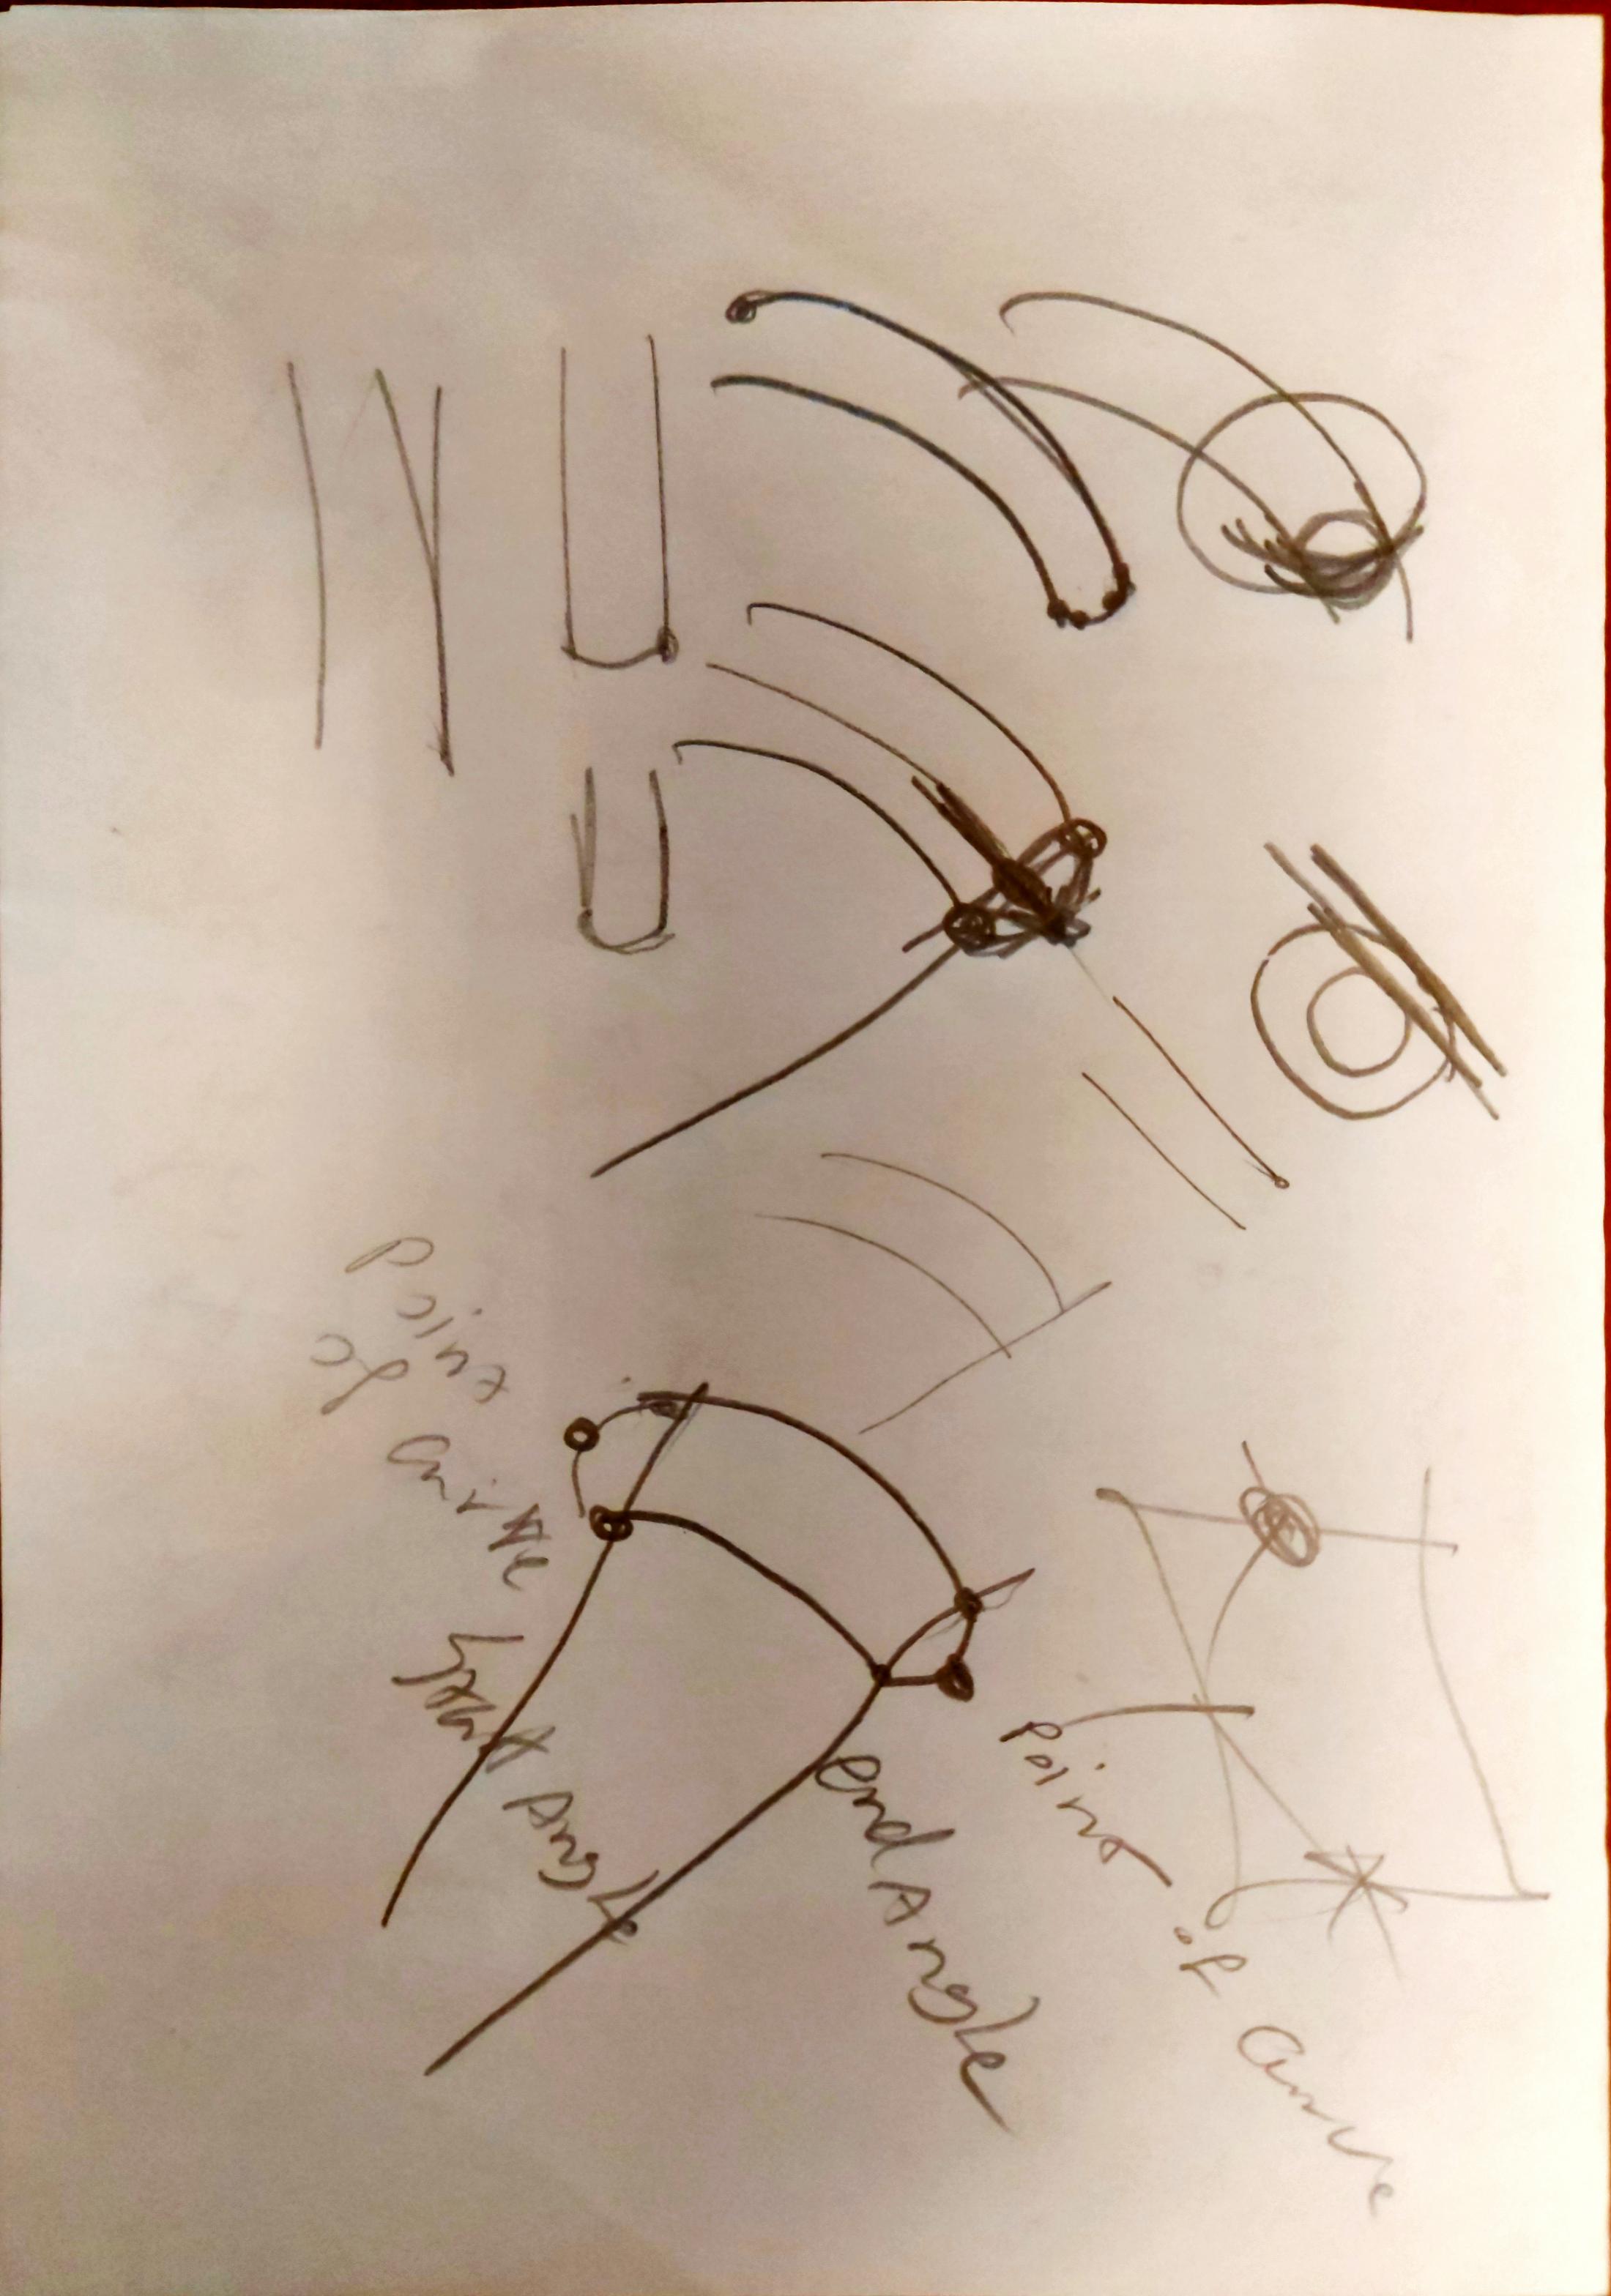 Point
of
Curve
start Angle
end Angle
Point of Curve